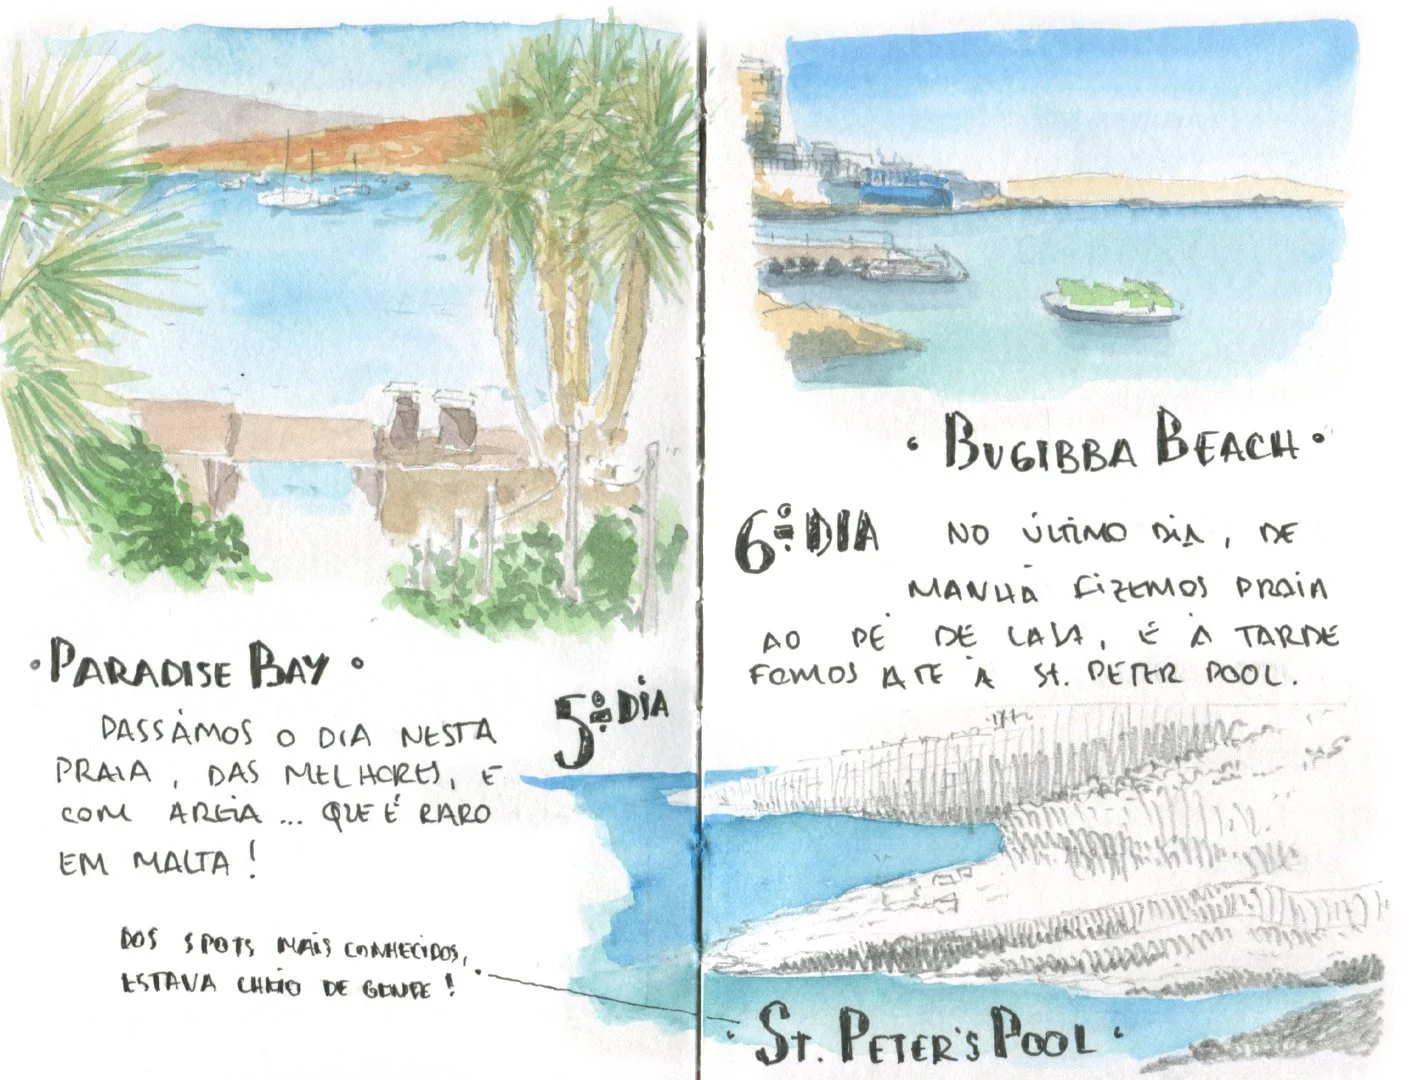 · PARADISE BAY ·
5º DIA
PASSÁMOS O DIA NESTA
PRAIA, DAS MELHORES, E
COM AREIA... QUE É RARO
EM MALTA!
DOS SPOTS MAIS CONHECIDOS,
ESTAVA CHEIO DE GENTE!
· BUGIBBA BEACH ·
6º DIA
NO ÚLTIMO DIA, DE
MANHÃ FIZEMOS PRAIA
AO PÉ DE CASA, E À TARDE
FOMOS ATÉ À ST. PETER POOL.
· ST. PETER'S POOL ·